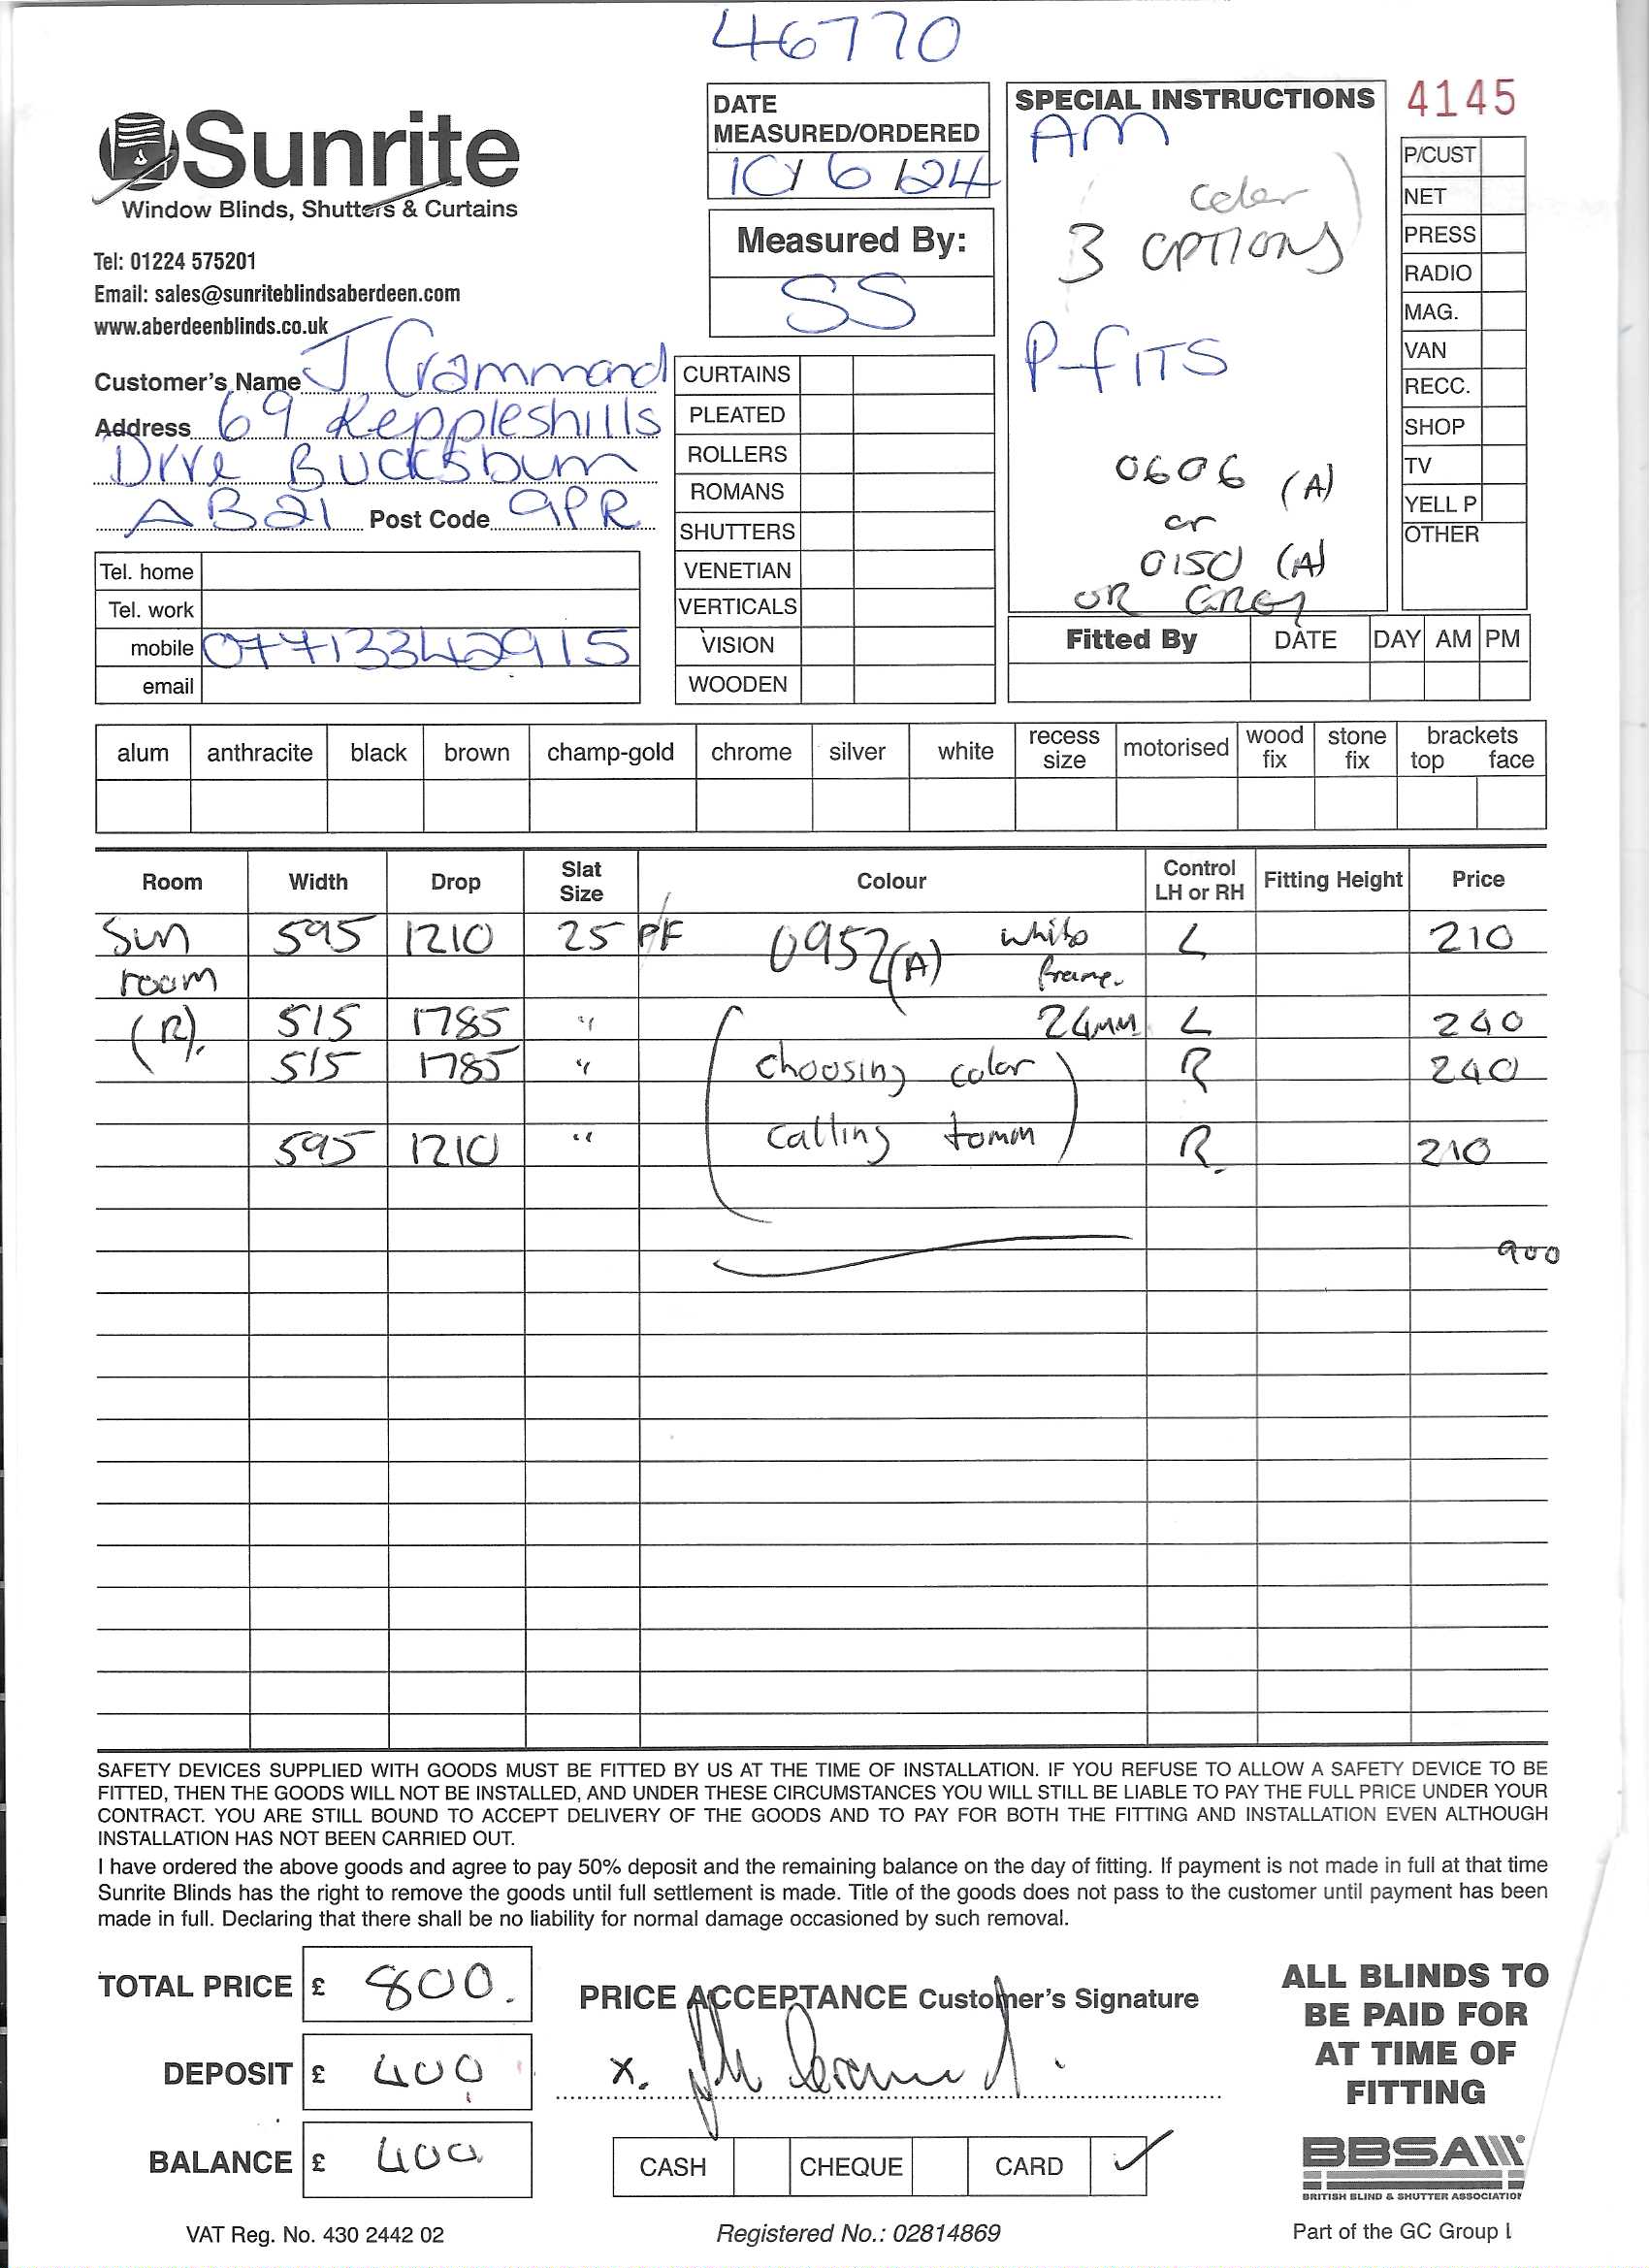 46770
Sunrite
Window Blinds, Shutters & Curtains
Tel: 01224 575201
Email: sales@sunriteblindsaberdeen.com
www.aberdeenblinds.co.uk
Customer's Name J Crammond
Address 69 Keppleshills
Drive Bucksburn
AB21 Post Code 9PR
Tel. home
Tel. work
mobile 07713342915
email
DATE
MEASURED/ORDERED
10/6/24
Measured By:
SS
CURTAINS
PLEATED
ROLLERS
ROMANS
SHUTTERS
VENETIAN
VERTICALS
VISION
WOODEN
SPECIAL INSTRUCTIONS
AM
color
3 OPTIONS
P-fITS
0606 (A)
or
0150 (A)
OR GREY
4145
P/CUST
NET
PRESS
RADIO
MAG.
VAN
RECC.
SHOP
TV
YELL P
OTHER
Fitted By DATE DAY AM PM
alum anthracite black brown champ-gold chrome silver white recess size motorised wood fix stone fix brackets top face
Room Width Drop Slat Size Colour Control LH or RH Fitting Height Price
Sun 595 1210 25 PF 0957(A) white L 210
room frame.
(R). 515 1785 " 24mm L 240
515 1785 " choosing color R 240
595 1210 " calling tomm R. 210
900
SAFETY DEVICES SUPPLIED WITH GOODS MUST BE FITTED BY US AT THE TIME OF INSTALLATION. IF YOU REFUSE TO ALLOW A SAFETY DEVICE TO BE
FITTED, THEN THE GOODS WILL NOT BE INSTALLED, AND UNDER THESE CIRCUMSTANCES YOU WILL STILL BE LIABLE TO PAY THE FULL PRICE UNDER YOUR
CONTRACT. YOU ARE STILL BOUND TO ACCEPT DELIVERY OF THE GOODS AND TO PAY FOR BOTH THE FITTING AND INSTALLATION EVEN ALTHOUGH
INSTALLATION HAS NOT BEEN CARRIED OUT.
I have ordered the above goods and agree to pay 50% deposit and the remaining balance on the day of fitting. If payment is not made in full at that time
Sunrite Blinds has the right to remove the goods until full settlement is made. Title of the goods does not pass to the customer until payment has been
made in full. Declaring that there shall be no liability for normal damage occasioned by such removal.
TOTAL PRICE £ 800.
DEPOSIT £ 400
BALANCE £ 400
PRICE ACCEPTANCE Customer's Signature
x.
CASH CHEQUE CARD ✓
ALL BLINDS TO
BE PAID FOR
AT TIME OF
FITTING
BBSA
BRITISH BLIND & SHUTTER ASSOCIATION
VAT Reg. No. 430 2442 02
Registered No.: 02814869
Part of the GC Group L